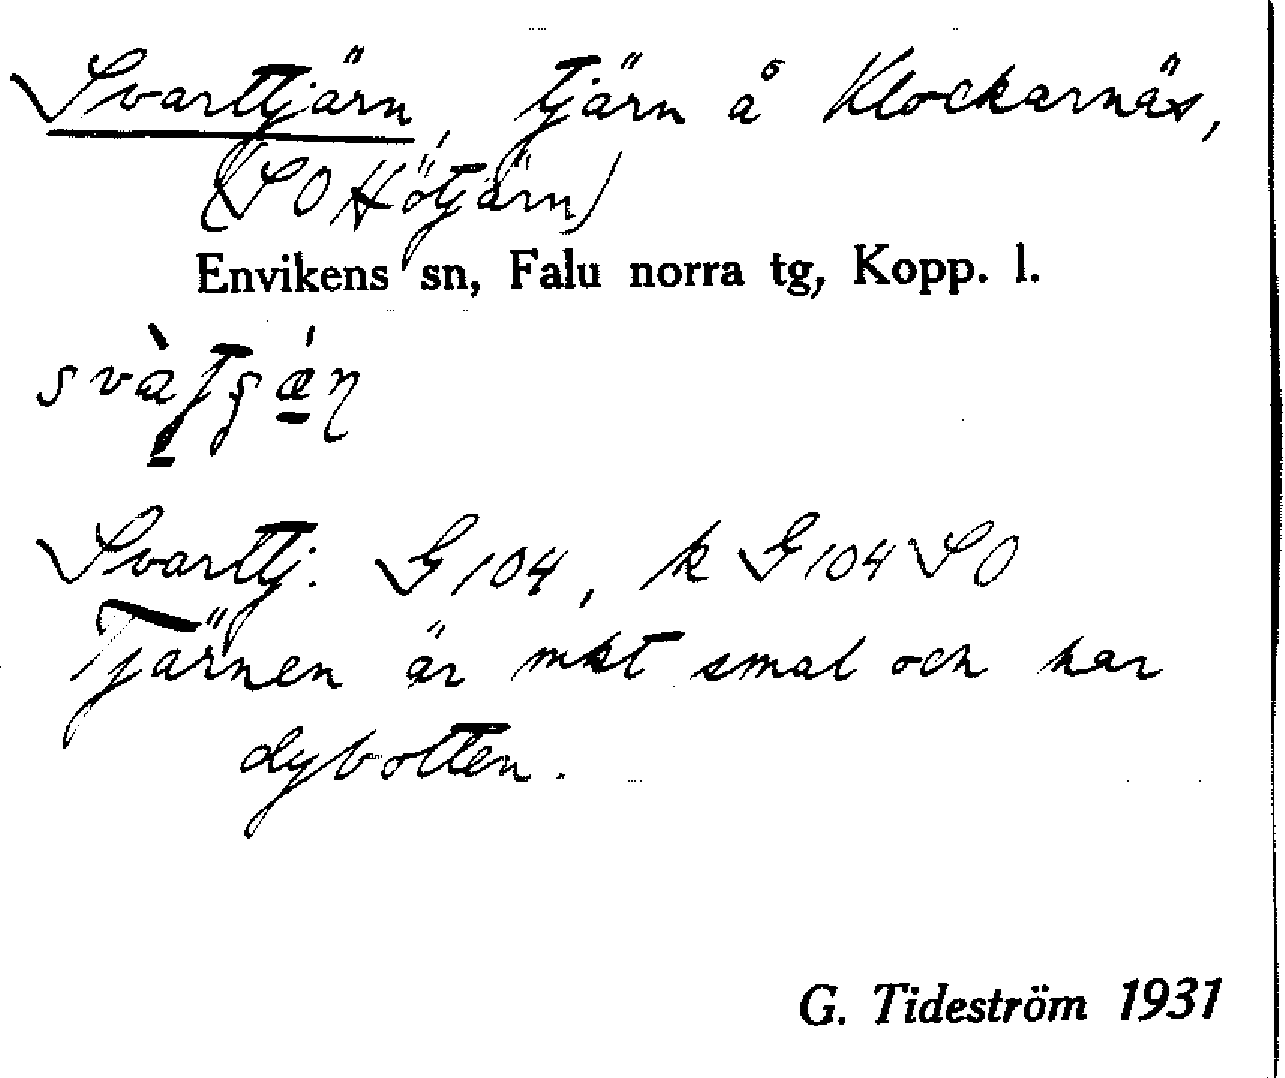 Svarttjärn, tjärn å Klockarnäs,
(SO Hötjärn)
Envikens sn, Falu norra tg, Kopp. l.
Svarttj. G104, k G104 SO
Tjärnen är mkt smal och har
dybotten.
G. Tideström 1931